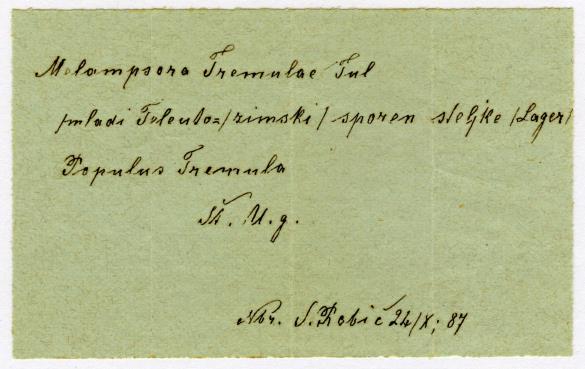 Melampsora Tremulae Tul
/mladi Teleuto=/zimski/ sporen steljke /Lager/
Populus Tremula
Št. U. g.
Nbr. S. Robič 24/X; 87